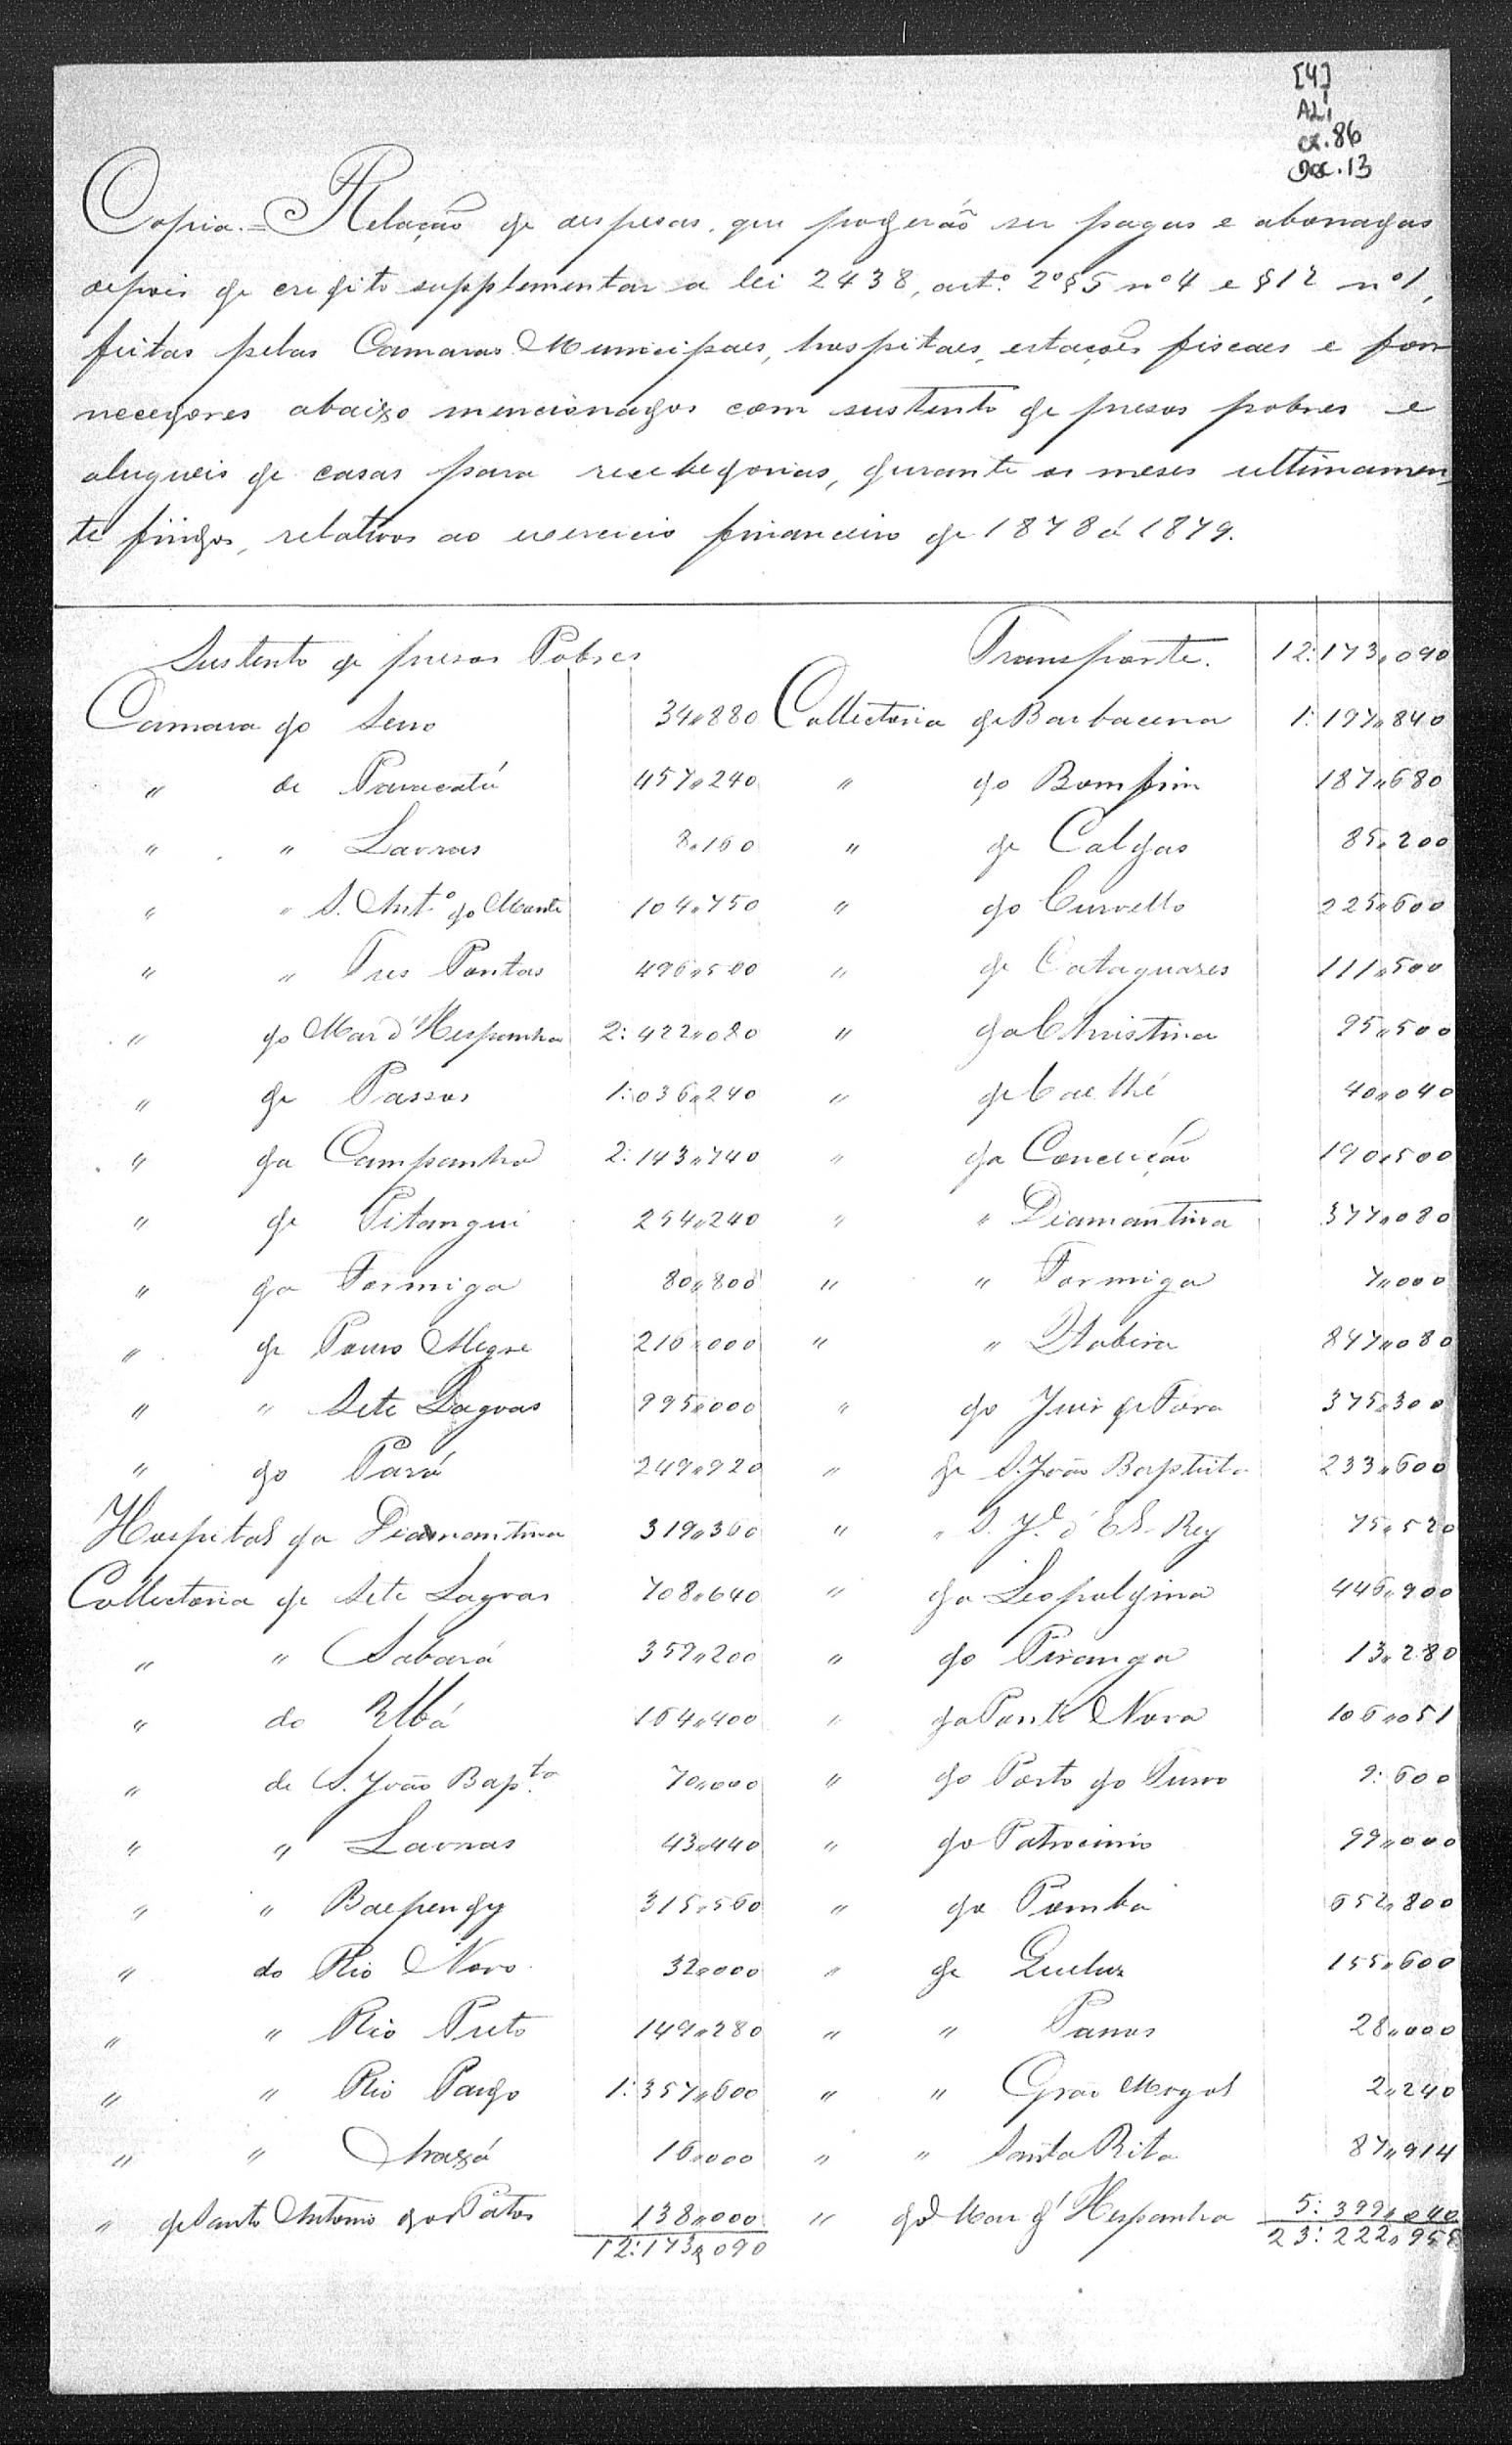 [4]
AL1
cx.86
Doc.13
Copia. = Relação de despesas, que poderão ser pagas e abonadas
depois de credito supplementar a lei 2438, art.º 2º § 5 nº 4 e § 12 nº 1,
feitas pelas Camaras Municipaes, hospitaes, estações fiscaes e for
necedores abaixo mencionados com sustento de presos pobres e
alugueis de casas para recebedorias, durante os meses ultimamen
te findos, relativos ao exercicio financeiro de 1878 á 1879.
Sustento de presos Pobres
Camara do Serro 34,,880
" de Paracatú 457,,240
" " Lavras 8,,160
" " S. Ant.º do Monte 104,,750
" " Tres Pontas 496,,500
" do Mar d'Hespanha 2:422,,080
" de Passos 1:036,,240
" da Campanha 2:143,,740
" de Pitangui 254,,240
" da Formiga 80,,800
" de Pouso Alegre 210,,000
" " Sete Lagoas 995,,000
" do Pará 249,,920
Hospital da Diamantina 319,,360
Collectoria de Sete Lagoas 708,,640
" " Sabará 359,,200
" do Ubá 164,,400
" de S. João Bap.ta 70,,000
" " Lavras 43,,440
" " Baependy 315,,560
" do Rio Novo 32,,000
" " Rio Preto 149,,280
" " Rio Pardo 1:357,,600
" " Araxá 16,,000
" de Santo Antonio dos Patos 138,,000
12:173,,090
Transporte. 12:173,,090
Collectoria de Barbacena 1:197,,840
" do Bomfim 187,,680
" de Caldas 85,,200
" do Curvello 225,,600
" de Cataguazes 111,,500
" da Christina 95,,500
" de Caethé 40,,040
" da Conceição 190,,500
" " Diamantina 377,,080
" " Formiga 7,,000
" " Itabira 847,,080
" do Juiz de Fora 375,,300
" de S. João Baptista 233,,600
" " S. J.e d'El-Rey 75,,520
" da Leopoldina 446,,900
" do Piranga 13,,280
" da Ponte Nova 106,,051
" do Porto do Turvo 9:600
" do Patrocinio 99,,000
" do Pomba 652,,800
" de Queluz 155,,600
" " 28,,000
" " Grão Mogol 2,,240
" " Santa Rita 87,,914
" do Mar d'Hespanha 5:399,,040
23:222,,955